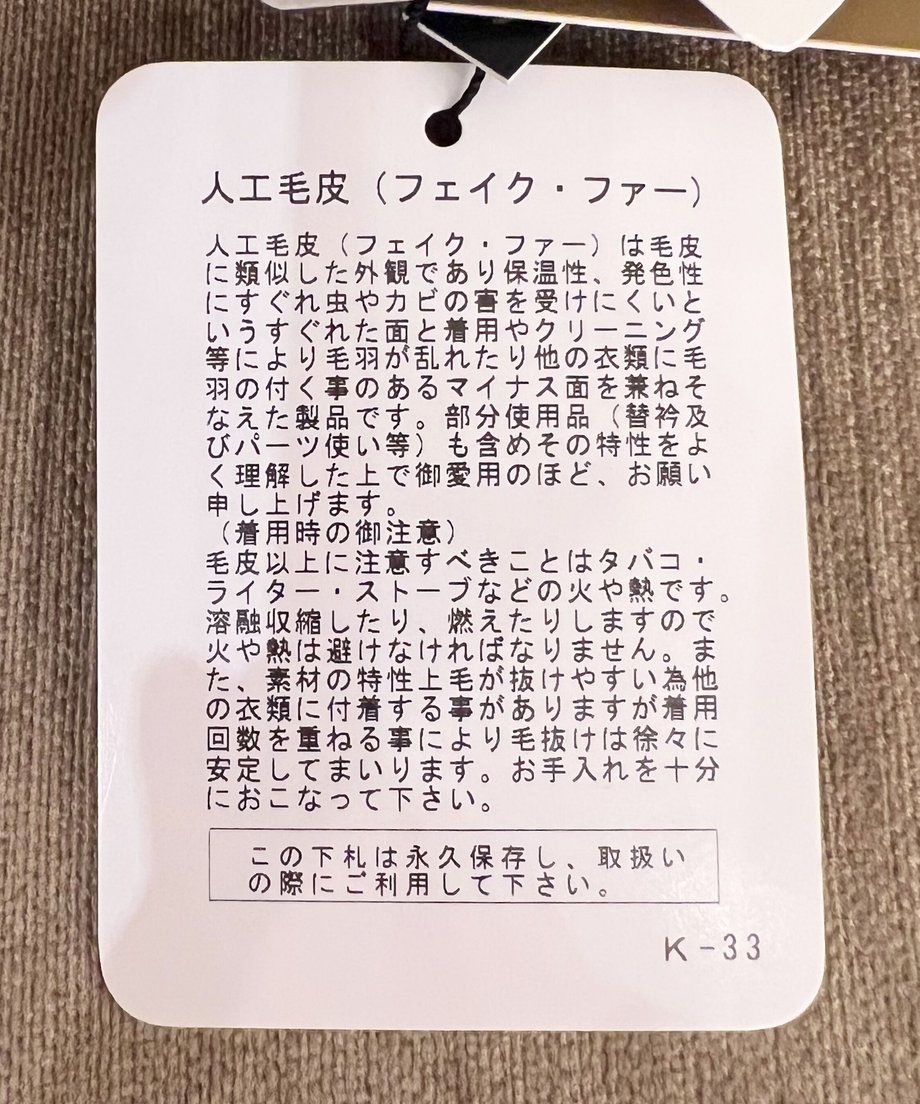 人工毛皮（フェイク・ファー）
人工毛皮（フェイク・ファー）は毛皮
に類似した外観であり保温性、発色性
にすぐれ虫やカビの害を受けにくいと
いうすぐれた面と着用やクリーニング
等により毛羽が乱れたり他の衣類に毛
羽の付く事のあるマイナス面を兼ねそ
なえた製品です。部分使用品（替衿及
びパーツ使い等）も含めその特性をよ
く理解した上で御愛用のほど、お願い
申し上げます。
（着用時の御注意）
毛皮以上に注意すべきことはタバコ・
ライター・ストーブなどの火や熱です。
溶融収縮したり、燃えたりしますので
火や熱は避けなければなりません。ま
た、素材の特性上毛が抜けやすい為他
の衣類に付着する事がありますが着用
回数を重ねる事により毛抜けは徐々に
安定してまいります。お手入れを十分
におこなって下さい。
この下札は永久保存し、取扱い
の際にご利用して下さい。
K-33